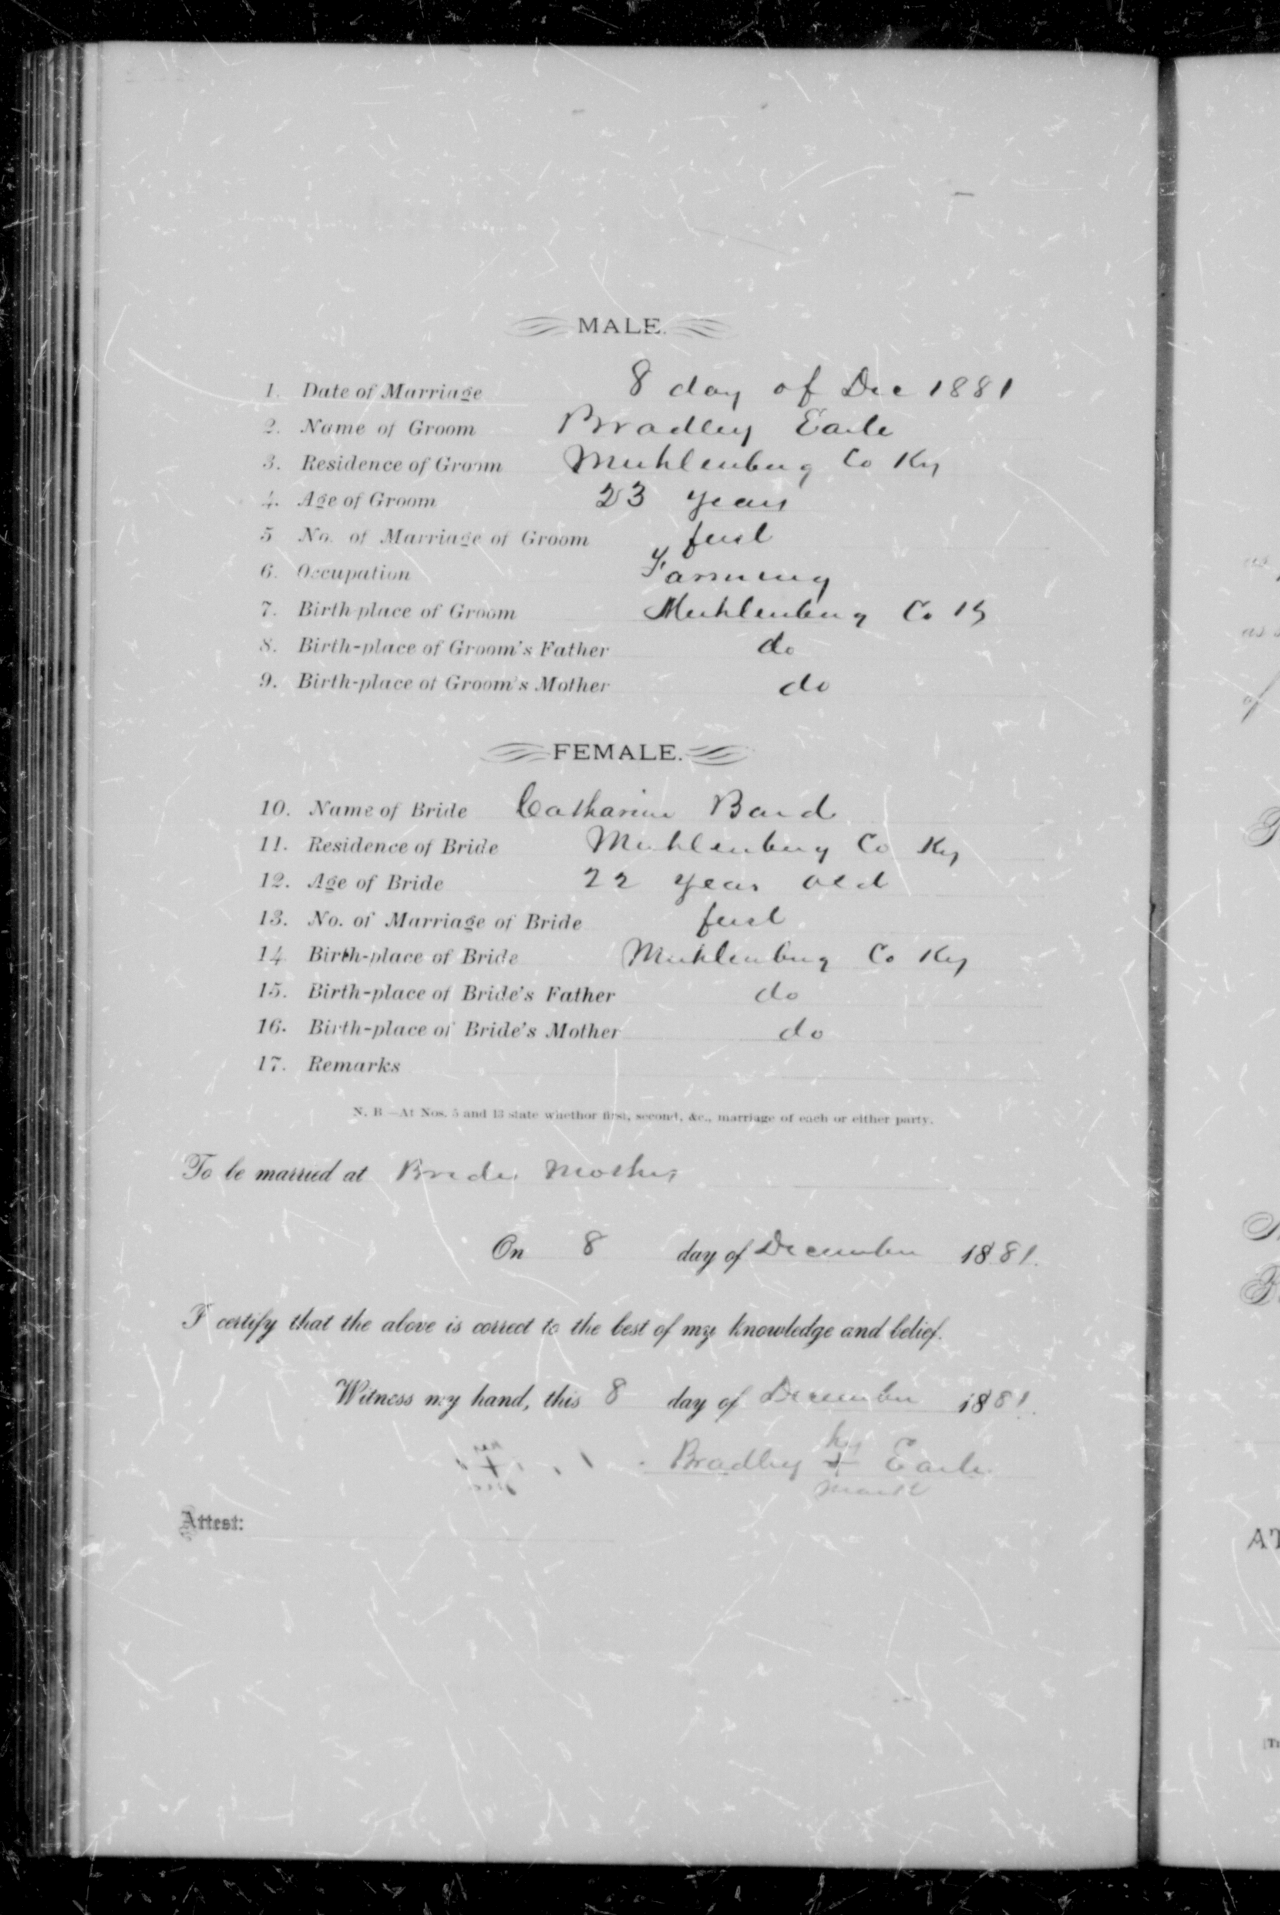 MALE.
1. Date of Marriage 8 day of Dec 1881
2. Name of Groom Bradley Earle
3. Residence of Groom Muhlenburg Co Ky
4. Age of Groom 23 years
5 No. of Marriage of Groom first
6. Occupation Farming
7. Birth-place of Groom Muhlenburg Co Ky
8. Birth-place of Groom's Father do
9. Birth-place of Groom's Mother do
FEMALE.
10. Name of Bride Catharine Bard
11. Residence of Bride Muhlenburg Co Ky
12. Age of Bride 22 years old
13. No. of Marriage of Bride first
14 Birth-place of Bride Muhlenburg Co Ky
15. Birth-place of Bride's Father do
16. Birth-place of Bride's Mother do
17. Remarks
N. B.—At Nos. 5 and 13 state whether first, second, &c., marriage of each or either party.
To be married at Brides Mothers
On 8 day of December 1881.
I certify that the above is correct to the best of my knowledge and belief.
Witness my hand, this 8 day of December 1881.
his
Bradley + Earle
mark
Attest: